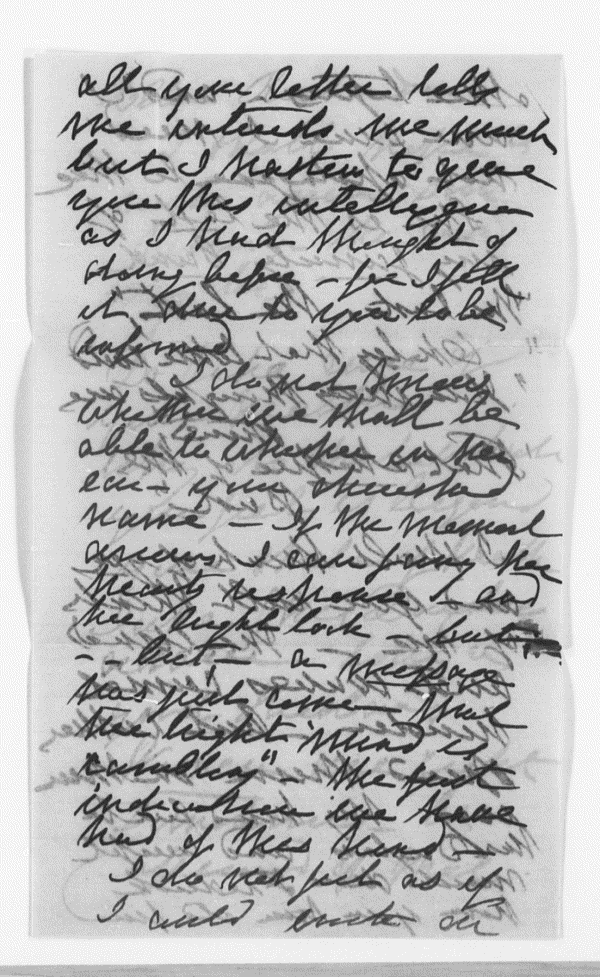 all your letter tells
me interests me much
but I hasten to give
you this intelligence
as I had thought of
doing before - for I felt
it - due to you to be
informed
I do not know
whether we shall be
able to whisper in her
ear - your cherished
name - If the moment
occurs I can fancy her
hearts response - and
her bright look - but
- - but - a message
has just come - that
the bright mind is
rambling" - the first
indication we have
had of this kind -
I do not feel as if
I could write on